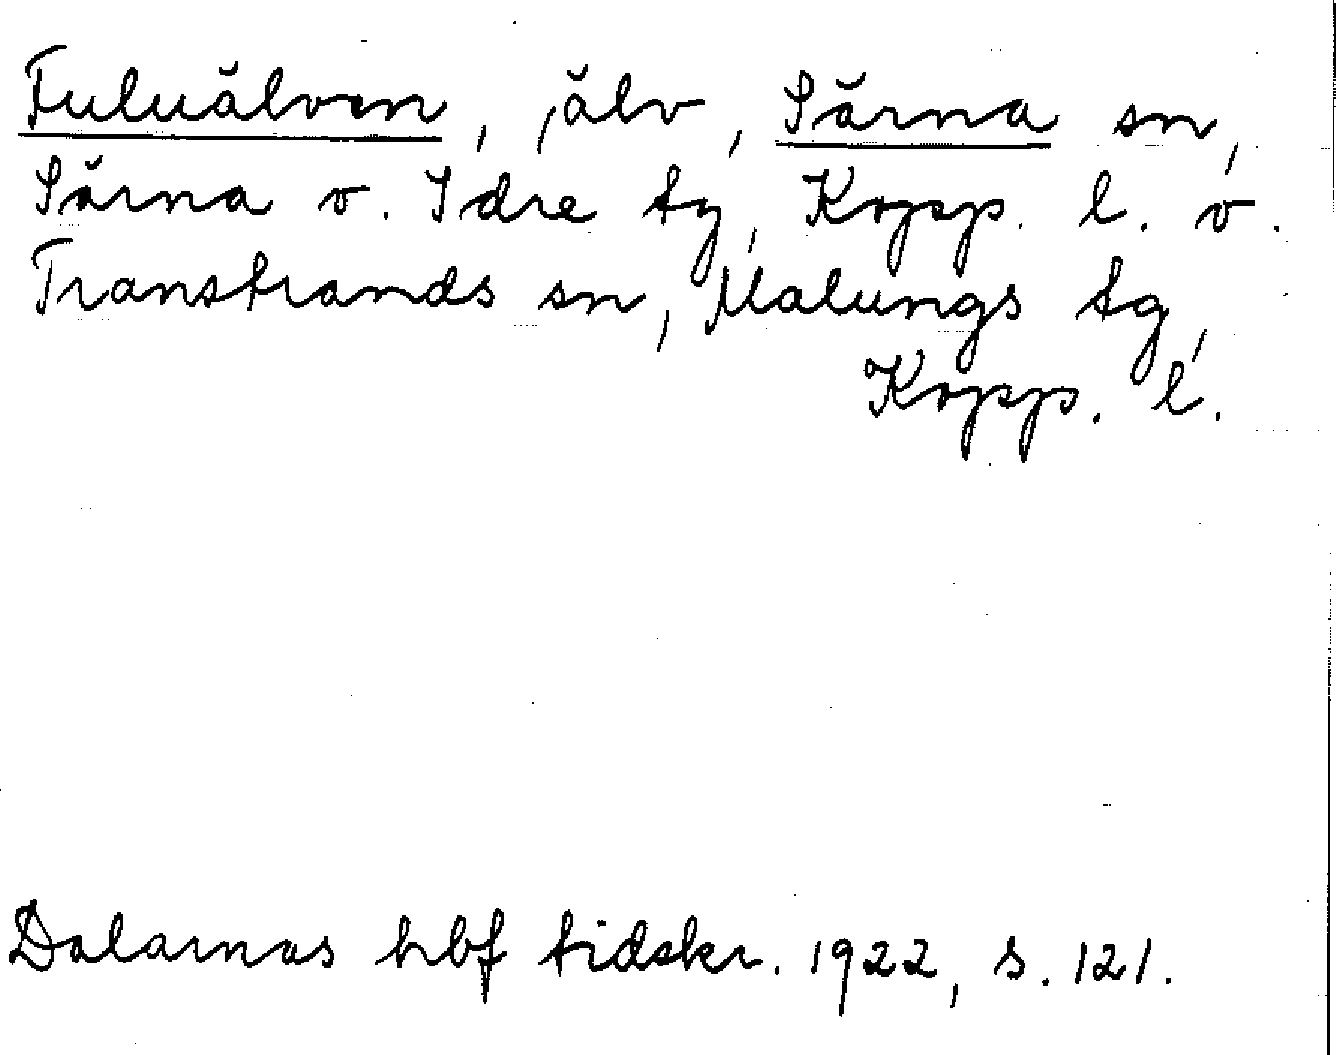 Fuluälven, älv, Särna sn,
Särna o. Idre tg, Kopp. l. o.
Transtrands sn, Malungs tg,
Kopp. l.
Dalarnas hbf tidskr. 1922, s. 121.